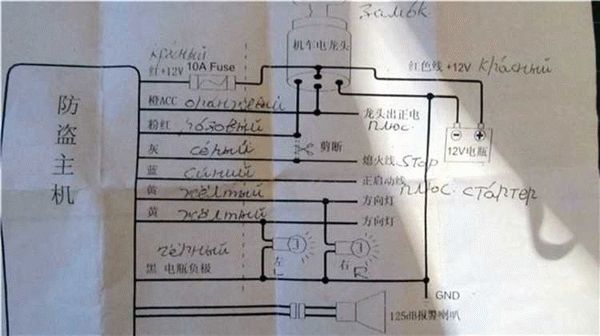 замок
机车电龙头
красный
红+12V 10A Fuse
红色线 +12V красный
橙ACC оранжевый
龙头出正电
плюс
粉红 розовый
12V电瓶
灰 серый
剪断
熄火线 STOP
蓝 синий
正启动线
плюс. стартер
黄 жёлтый
方向灯
黄 жёлтый
方向灯
防盗主机
чёрный
左 L
右 R
黑 电瓶负极
GND
125dB报警喇叭